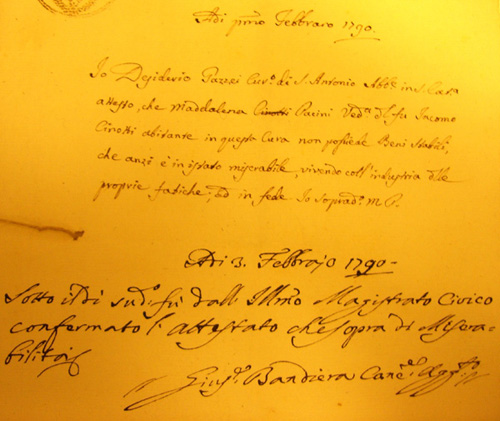 Adi primo Febbraro 1790.
Io Desiderio Pazzei Cur.º di S. Antonio Abbe in
attesto, che Maddalena Cinotti Pacini Ved.ª del fu Iacomo
Cinotti abitante in questa Cura non possiede Beni Stabili,
che anzi è in istato miserabile, vivendo coll'industria delle
proprie fatiche; ed in fede Io soprad.º M. P.
Adi 3. Febbrajo 1790-
Sotto il dì sud.º fù dall' Illmo Magistrato Civico
confermato l'attestato che sopra di Misera-
bilità
Gius.e Bandiera Canc.e